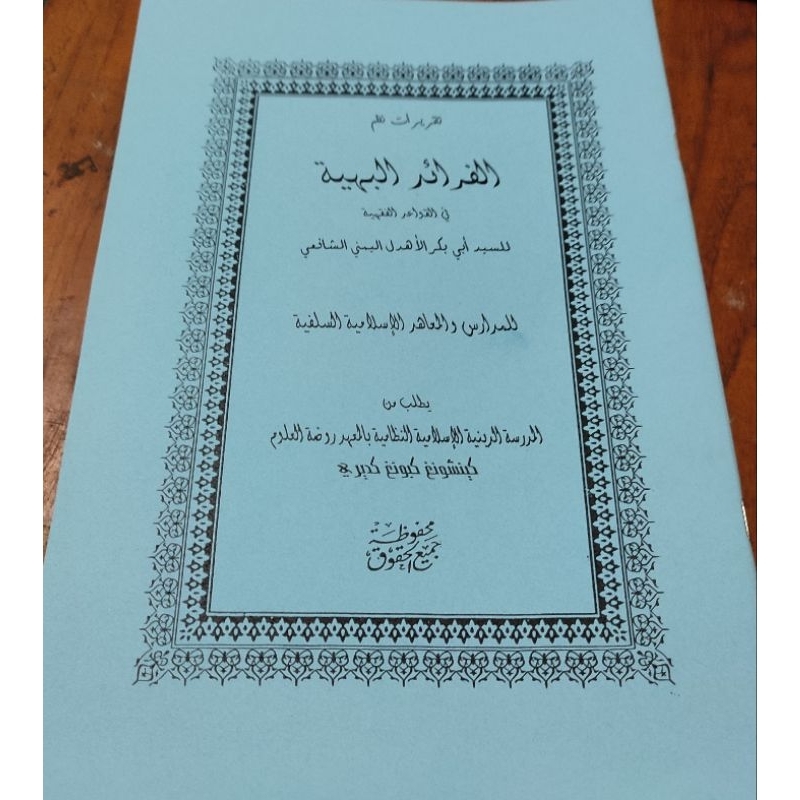 تقريرات نظم
الفرائد البهية
في القواعد الفقهية
للسيد أبي بكر الأهدل اليمني الشافعي
للمدارس والمعاهد الإسلامية السلفية
يطلب من
المدرسة الدينية الإسلامية النظامية بالمعهد روضة العلوم
كينشونغ كبونغ كديري
جميع الحقوق محفوظة